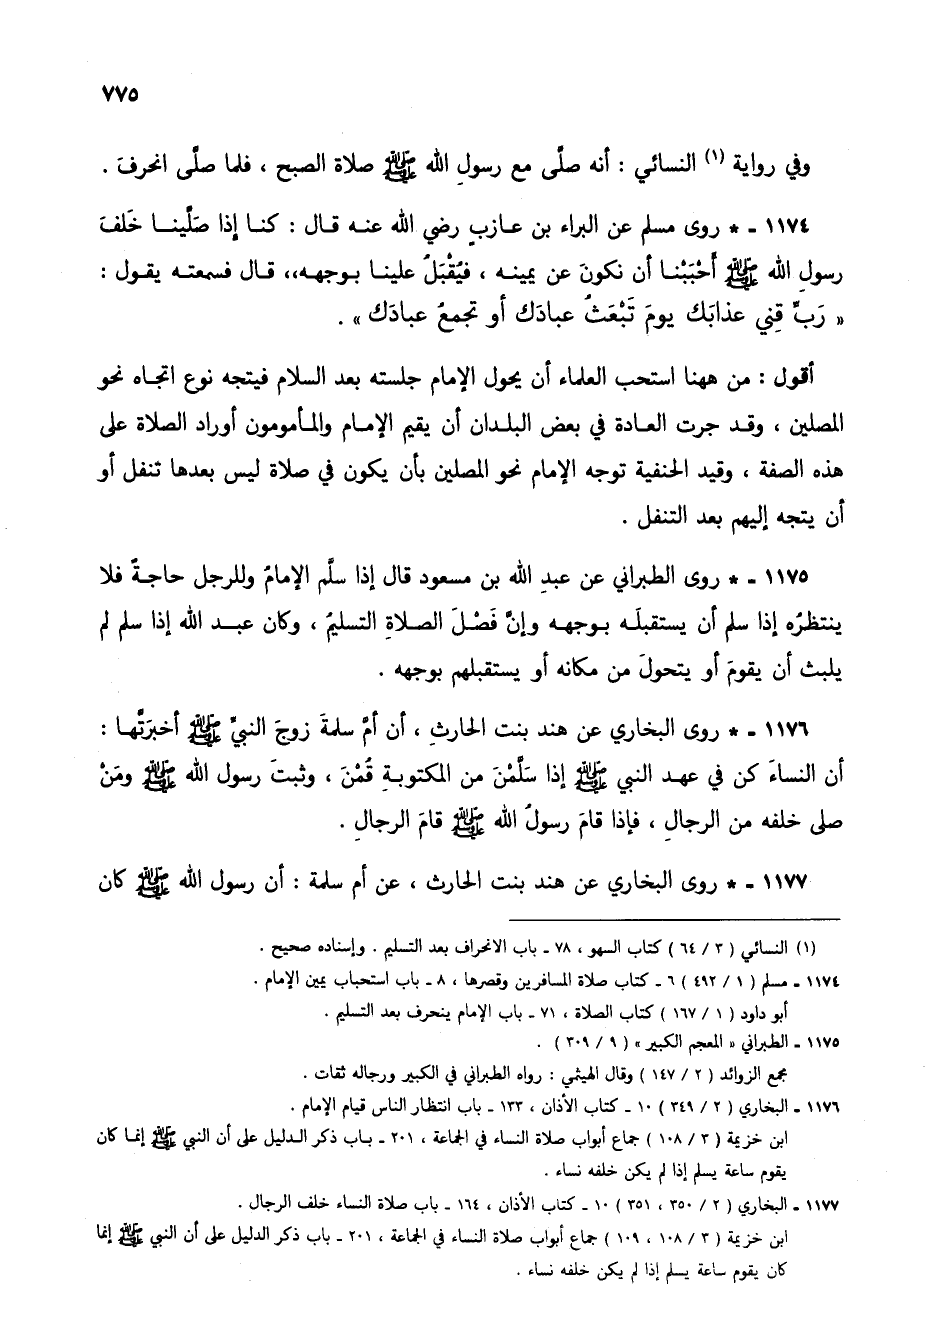 ٧٧٥
وفي رواية (١) النسائي : أنه صلَّى مع رسولِ الله ﷺ صلاة الصبح ، فلما صلَّى انحرفَ .
١١٧٤ ـ * روى مسلم عن البراء بن عـازبٍ رضي الله عنـه قـال : كنـا إذا صَلَّينـا خَلفَ
رسولِ الله ﷺ أَحْبَبْنـا أن نكونَ عن يمينـه ، فيُقْبَلُ علينـا بـوجهـه،، قـال فسمعتـه يقـول :
« رَبِّ قِني عذابَك يومَ تَبْعَثُ عبادَك أو تجمعُ عبادَك » .
أقول : من ههنا استحب العلماء أن يحول الإمام جلسته بعد السلام فيتجه نوع اتجاه نحو
المصلين ، وقـد جرت العـادة في بعض البلـدان أن يقيم الإمـام والمـأمومون أوراد الصلاة على
هذه الصفة ، وقيد الحنفية توجه الإمام نحو المصلين بأن يكون في صلاة ليس بعدها تنفل أو
أن يتجه إليهم بعد التنفل .
١١٧٥ ـ * روى الطبراني عن عبدِ الله بن مسعود قال إذا سلَّم الإمامُ وللرجل حاجـةٌ فلا
ينتظرُه إذا سلم أن يستقبلَـه بـوجهـه وإنَّ فَصْـلَ الصـلاةِ التسليمُ ، وكان عبـد الله إذا سلم لم
يلبث أن يقومَ أو يتحولَ من مكانه أو يستقبلهم بوجهه .
١١٧٦ ـ * روى البخاري عن هند بنت الحارثِ ، أن أمَّ سلمةَ زوجَ النبيِّ ﷺ أخبرَتْهـا :
أن النساءَ كن في عهـد النبي ﷺ إذا سَلَّمْنَ من المكتوبـةِ قُمْنَ ، وثبتَ رسول الله ﷺ ومَنْ
صلى خلفه من الرجالِ ، فإذا قامَ رسولُ الله ﷺ قامَ الرجالِ .
١١٧٧ ـ * روى البخاري عن هند بنت الحارث ، عن أم سلمة : أن رسول الله ﷺ كان
(١) النسائي ( ٣ / ٦٤ ) كتاب السهو ، ٧٨ ـ باب الانحراف بعد التسليم . وإسناده صحيح .
١١٧٤ ـ مسلم ( ١ / ٤٩٢ ) ٦ ـ كتاب صلاة المسافرين وقصرها ، ٨ ـ باب استحباب يمين الإمام .
أبو داود ( ١ / ١٦٧ ) كتاب الصلاة ، ٧١ ـ باب الإمام ينحرف بعد التسليم .
١١٧٥ ـ الطبراني « المعجم الكبير » ( ٩ / ٣٠٩ ) .
مجمع الزوائد ( ٢ / ١٤٧ ) وقال الهيثمي : رواه الطبراني في الكبير ورجاله ثقات .
١١٧٦ ـ البخاري ( ٢ / ٣٤٩ ) ١٠ ـ كتاب الأذان ، ١٣٣ ـ باب انتظار الناس قيام الإمام .
ابن خزيمة ( ٣ / ١٠٨ ) جماع أبواب صلاة النساء في الجماعة ، ٢٠١ ـ بـاب ذكر الـدليل على أن النبي ﷺ إنمـا كان
يقوم ساعة يسلم إذا لم يكن خلفه نساء .
١١٧٧ ـ البخاري ( ٢ / ٣٥٠ ، ٣٥١ ) ١٠ ـ كتاب الأذان ، ١٦٤ ـ باب صلاة النساء خلف الرجال .
ابن خزيمة ( ٣ / ١٠٨ ، ١٠٩ ) جماع أبواب صلاة النساء في الجماعة ، ٢٠١ ـ باب ذكر الدليل على أن النبي ﷺ إنما
كان يقوم ساعة يسلم إذا لم يكن خلفه نساء .